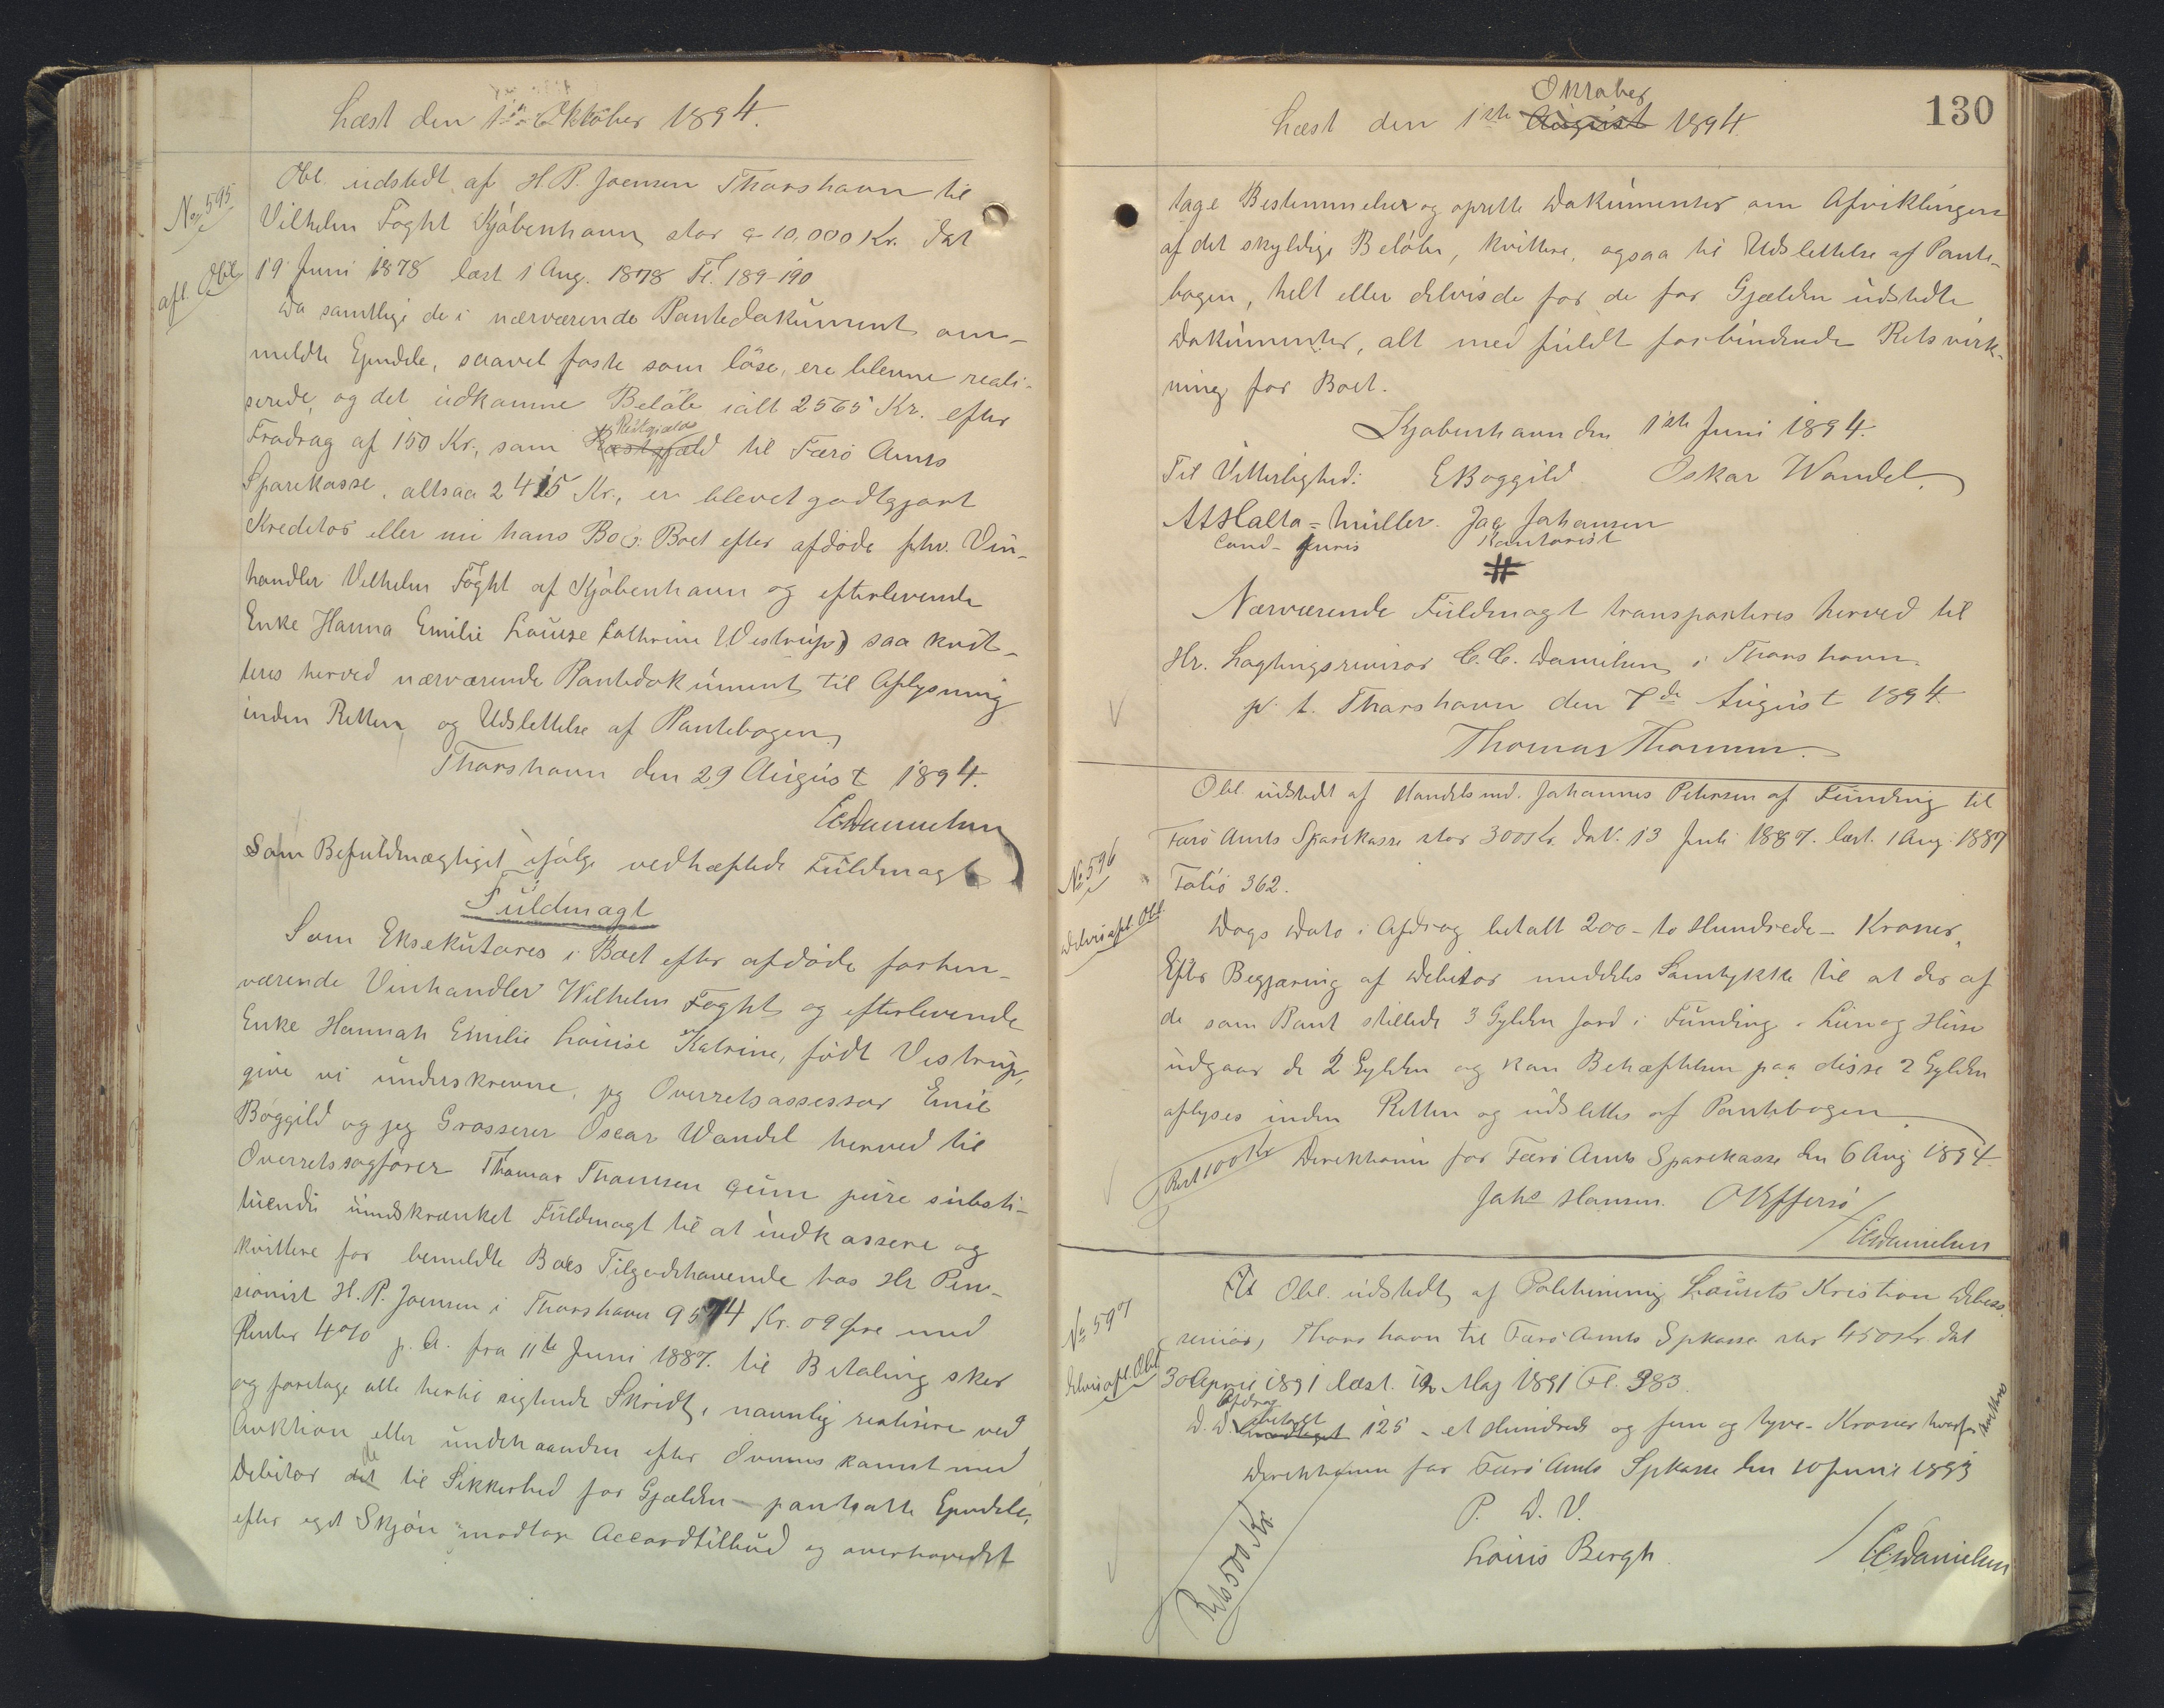 Læst den 1ste Oktober 1894.
No 595
afl. Obl.
Obl. udstedt af H. P. Joensen Thorshavn til
Vilhelm Foght Kjøbenhavn stor 10,000 Kr. dat
19 Juni 1878 læst 1 Aug. 1878 Fl. 189-190
Da samtlige de i nærværende Pantedokument om-
meldte Ejendele, saavel faste som løse, ere blevne reali-
serede, og det udkomne Beløb ialt 2565 Kr. efter
Restgjæld
Fradrag af 150 Kr., som Restgjæld til Færø Amts
Sparekasse, altsaa 2415 Kr., er blevet godtgjort
Kreditor eller nu hans Bo (: Boet efter afdøde fhv. Vin-
handler Vilhelm Foght af Kjøbenhavn og efterlevende
Enke Hanna Emilie Louise Cathrine Westrup) saa kvit-
teres herved nærværende Pantedokument til Aflysning
inden Retten og Udslettelse af Pantebogen,
Thorshavn den 29 August 1894.
CCDanielsen
Som Befuldmægtiget ifølge vedhæftede Fuldmagt
Fuldmagt
Som Eksekutores i Boet efter afdøde forhen-
værende Vinhandler Wilhelm Foght og efterlevende
Enke Hannah Emilie Louise Katrine, født Vestrup,
give vi underskrevne, jeg Overretsassessor Emil
Bøggild og jeg Grosserer Oscar Wandel herved til
Overretssagfører Thomas Thomsen cum jure substi-
tuendi uindskrænket Fuldmagt til at indkassere og
kvittere for bemeldte Boes Tilgodehavende hos Hr Pen-
sionist H. P. Joensen i Thorshavn 9574 Kr. 09 Øre med
Renter 4% p. A. fra 11te Juni 1887. til Betaling sker
og foretage alle hertil sigtende Skridt, navnlig realisere ved
Auktion eller underhaanden efter Overenskomst med
de
Debitor det til Sikkerhed for Gjælden pantsatte Ejendele,
efter eget Skjøn modtage Accordtilbud og overhovedet
Oktober
Læst den 1ste August 1894.
130
tage Bestemmelser og oprette Dokumenter om Afviklingen
af det skyldige Beløb, kvittere, ogsaa til Udslettelse af Pante-
bogen, helt eller delvis de for de for Gjælden udstedte
Dokumenter, alt med fuldt forbindende Retsvirk-
ning for Boet.
Kjøbenhavn den 1ste Juni 1894.
Til Vitterlighed: E Bøggild Oskar Wandel
Malta-Müller. Jac Johansen
Cand. juris Kontorist
Nærværende Fuldmagt transporteres herved til
Hr. Lagtingsrevisor C. C. Danielsen i Thorshavn.
p. t. Thorshavn den 7de August 1894
Thomas Thomsen.
No 596
Delvis afl. Obl.
Obl. udstedt af Handelsmd. Johannes Petersen af Funding til
Færø Amts Sparekasse stor 300 Kr. Dat. 13 Juli 1887. læst. 1 Aug. 1887
Folio 362.
Dags Dato i Afdrag betalt 200 - to Hundrede - Kroner.
Efter Begjæring af Debitor meddeles Samtykke til at der af
de som Pant stillede 3 Gylden Jord i Funding i Lun og Huse
udgaar de 2 Gylden og kan Behæftelsen paa disse 2 Gylden
aflyses inden Retten og udslettes af Pantebogen
Rest 100 Kr
Direktionen for Færø Amts Sparekasse den 6 Aug 1894.
Johs Hansen. O Effersø
/CCDanielsen
No 597
delvis afl. Obl
Obl. udstedt af Politbetjent Laurits Kristian Debess
(senior) Thorshavn til Færø Amts Spkasse stor 450 Kr. dat
30 April 1891 læst. 12 Maj 1891 Fl. 383.
Afdrag
betalt
D. D. modtaget 125 - et Hundrede og fem og tyve - Kroner hvorfor kvitteres
Direktionen for Færø Amts Spkasse den 10 Juni 1893
P. D. V.
Louis Bergh.
/CCDanielsen